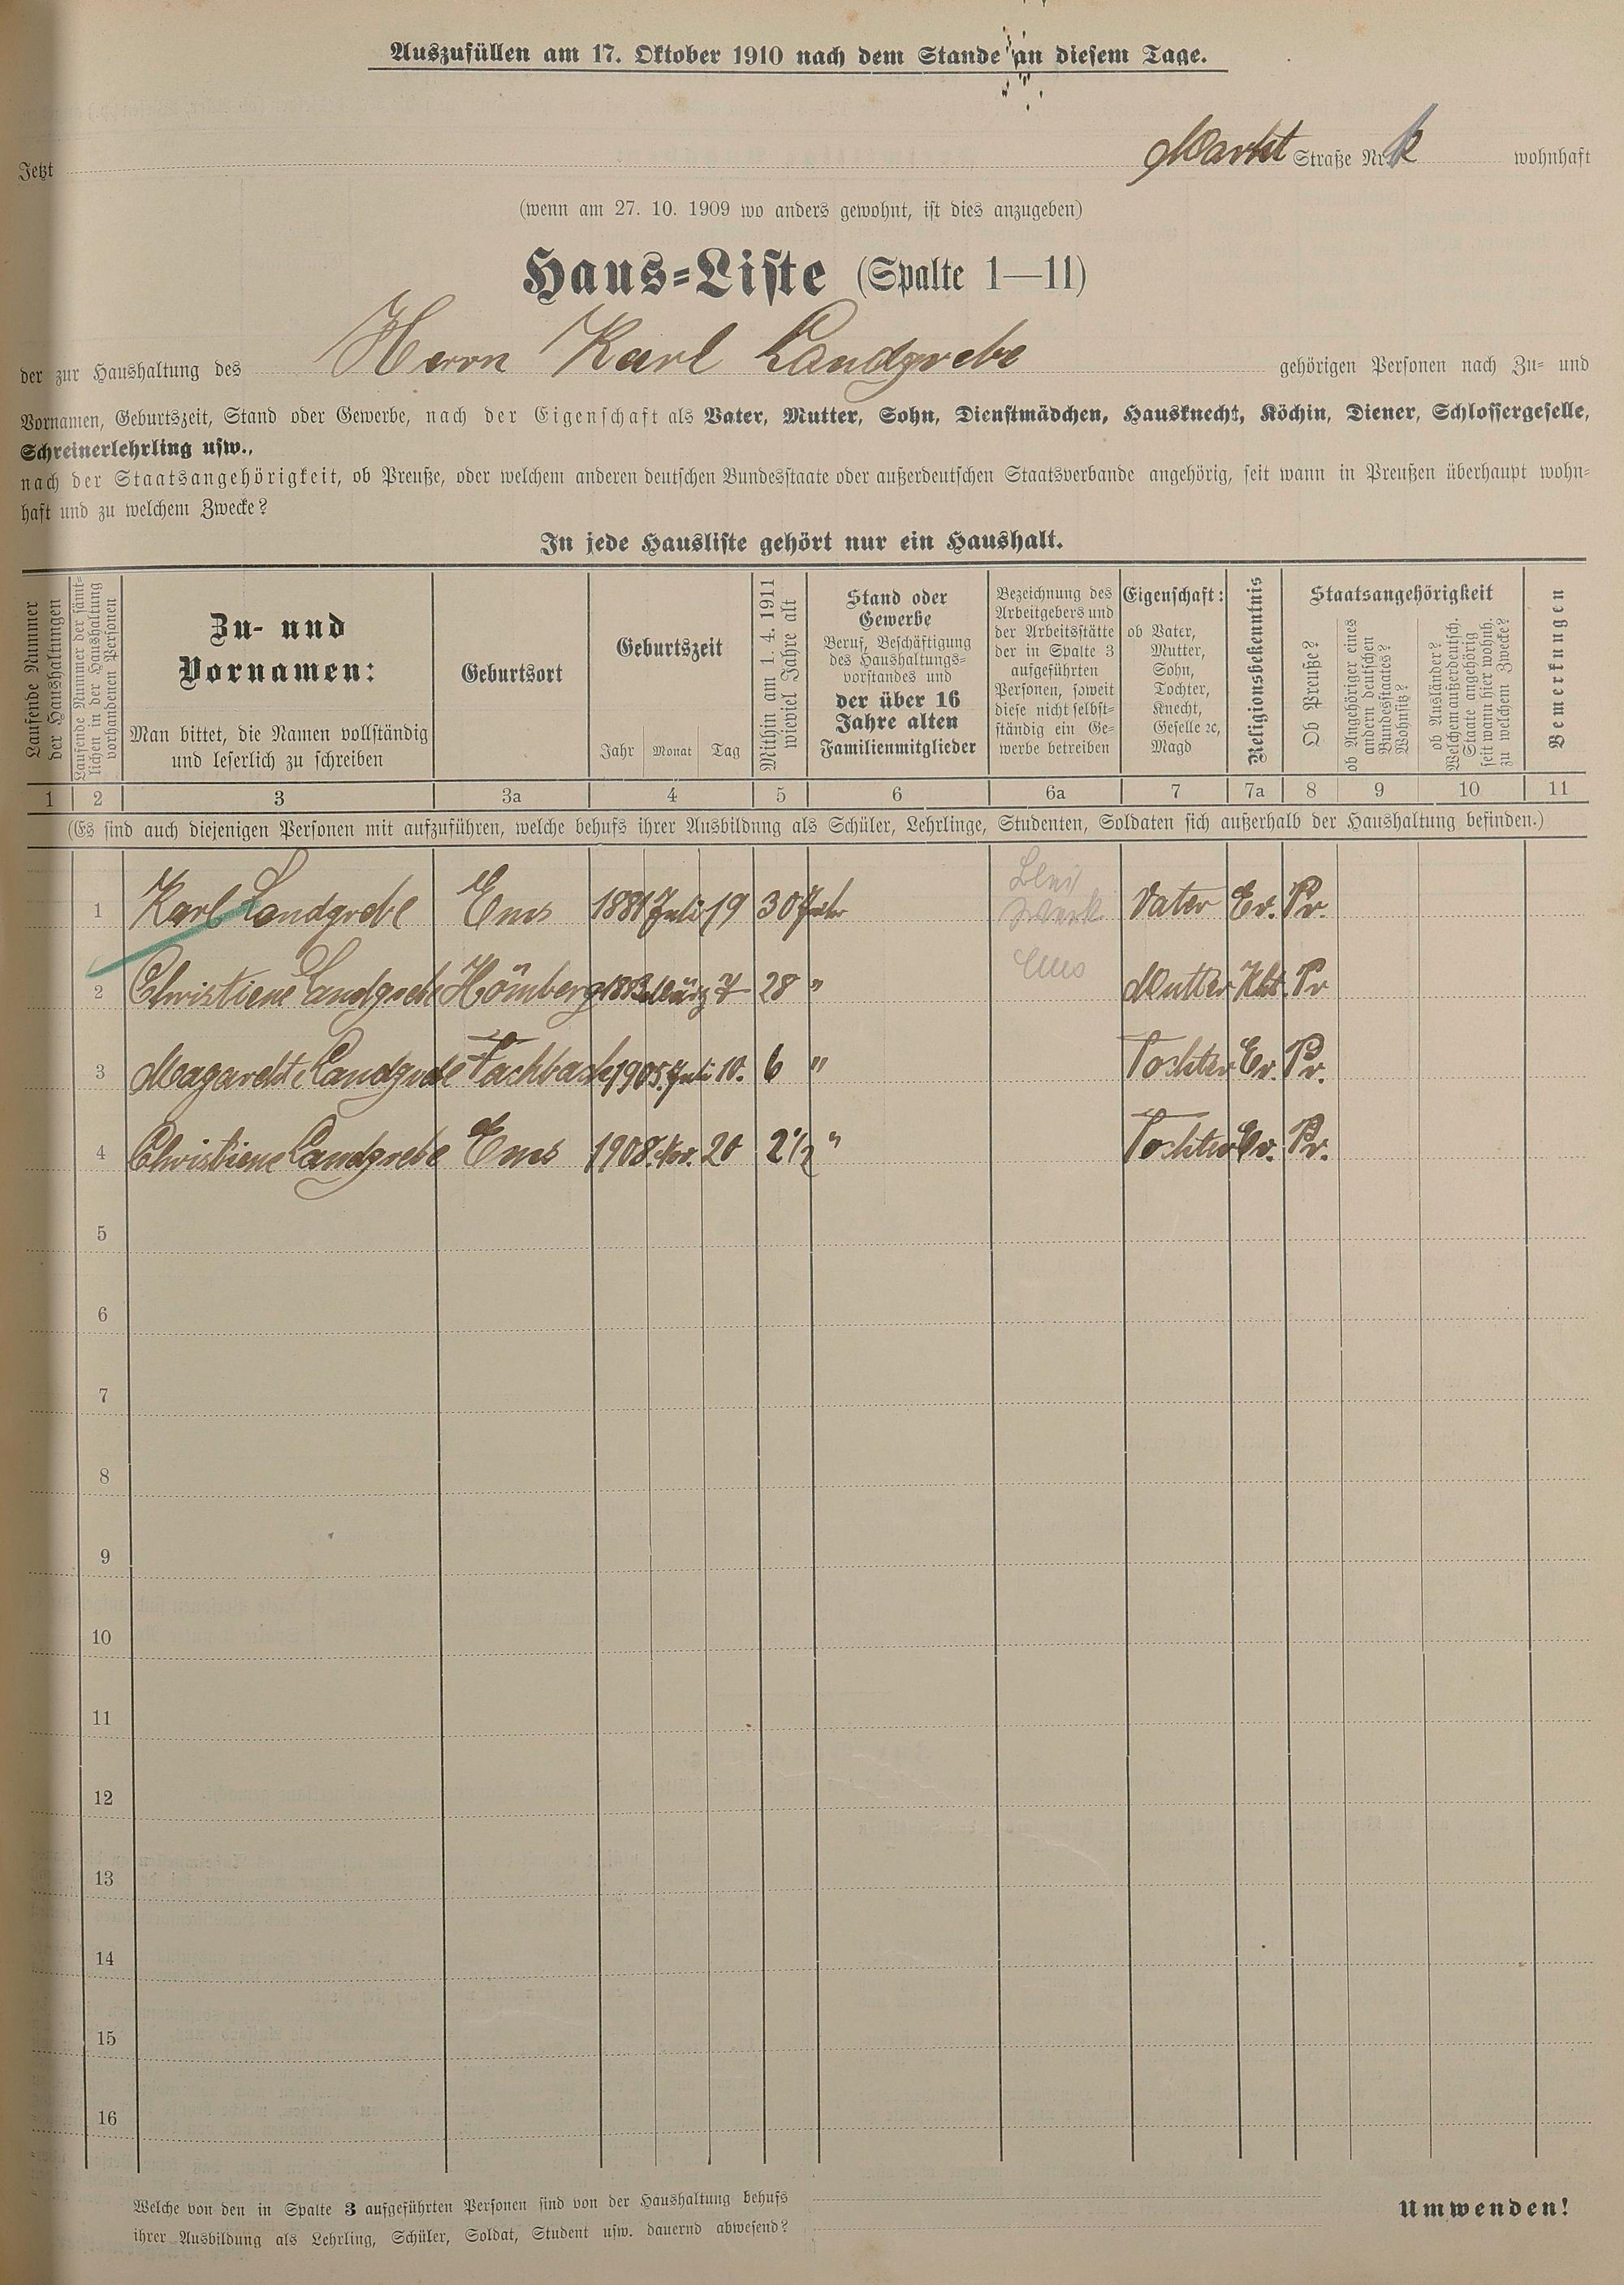 Auszufüllen am 17. Oktober 1910 nach dem Stande an diesem Tage.
Jetzt Markt Straße Nr. wohnhaft
(wenn am 27. 10. 1909 wo anders gewohnt, ist dies anzugeben)
Haus-Liste (Spalte 1—11)
der zur Haushaltung des Herrn Karl Landgrebe gehörigen Personen nach Zu- und
Vornamen, Geburtszeit, Stand oder Gewerbe, nach der Eigenschaft als Vater, Mutter, Sohn, Dienstmädchen, Hausknecht, Köchin, Diener, Schlossergeselle,
Schreinerlehrling usw.,
nach der Staatsangehörigkeit, ob Preuße, oder welchem anderen deutschen Bundesstaate oder außerdeutschen Staatsverbande angehörig, seit wann in Preußen überhaupt wohn-
haft und zu welchem Zwecke?
In jede Hausliste gehört nur ein Haushalt.
Laufende Nummer
der Haushaltungen
Laufende Nummer der sämt-
lichen in der Haushaltung
vorhandenen Personen
Zu- und
Vornamen:
Man bittet, die Namen vollständig
und leserlich zu schreiben
Geburtsort
Geburtszeit
Jahr Monat Tag
Mithin am 1. 4. 1911
wieviel Jahre alt
Stand oder
Gewerbe
Beruf, Beschäftigung
des Haushaltungs-
vorstandes und
der über 16
Jahre alten
Familienmitglieder
Bezeichnung des
Arbeitgebers und
der Arbeitsstätte
der in Spalte 3
aufgeführten
Personen, soweit
diese nicht selbst-
ständig ein Ge-
werbe betreiben
Eigenschaft:
ob Vater,
Mutter,
Sohn,
Tochter,
Knecht,
Geselle ec,
Magd
Religionsbekenntnis
Staatsangehörigkeit
Ob Preuße?
ob Angehöriger eines
andern deutschen
Bundesstaates?
Wohnsitz?
ob Ausländer?
Welchem außerdeutsch.
Staate angehörig
seit wann hier wohnh.
zu welchem Zwecke?
Bemerkungen
1 2 3 3a 4 5 6 6a 7 7a 8 9 10 11
(Es sind auch diejenigen Personen mit aufzuführen, welche behufs ihrer Ausbildung als Schüler, Lehrlinge, Studenten, Soldaten sich außerhalb der Haushaltung befinden.)
1 Karl Landgrebe Ems 1881 Juli 19 30 Jahr Vater Ev. Pr.
2 Christiene Landgrebe Hömberg 1883 März 7 28 " Mutter Kht. Pr
Ems
3 Magarehte Landgrebe Fachbach 1905. Juli 10. 6 " Tochter Ev. Pr.
4 Christiene Landgrebe Ems 1908. Nov. 20 2 1/2 " Tochter Ev. Pr.
5
6
7
8
9
10
11
12
13
14
15
16
Welche von den in Spalte 3 aufgeführten Personen sind von der Haushaltung behufs
ihrer Ausbildung als Lehrling, Schüler, Soldat, Student usw. dauernd abwesend?
Umwenden!